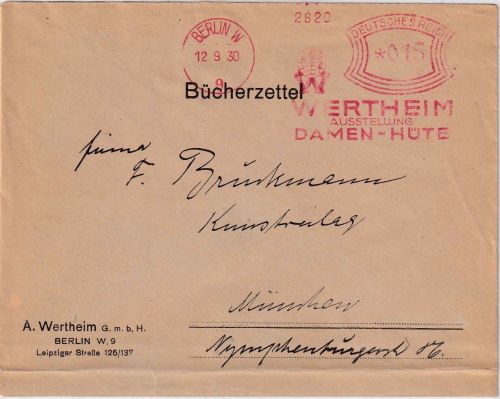 BERLIN W
12 9 30
9
2820
DEUTSCHES REICH
*015
W
WERTHEIM
AUSSTELLUNG
DAMEN-HÜTE
Bücherzettel
Firma
F. Bruckmann
Kunstverlag
München
Nymphenburgerstr. 86.
A. Wertheim G. m. b. H.
BERLIN W, 9
Leipziger Straße 126/137